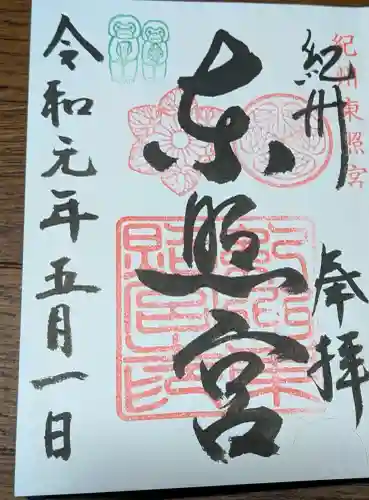 紀州東照宮
紀州
奉拝
東照宮
令和元年五月一日